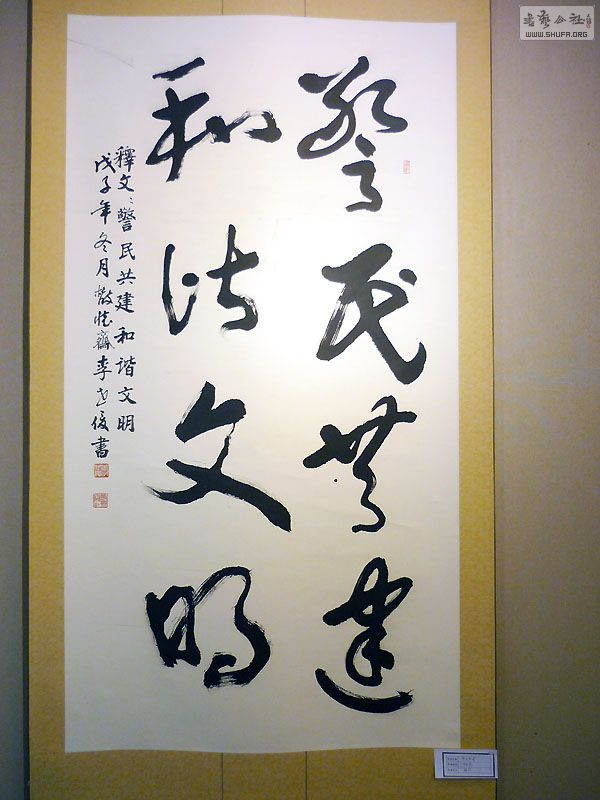 警民共建
和谐文明
釋文：警民共建和谐文明
戊子年冬月
李
俊書
书艺公社
WWW.SHUFA.ORG